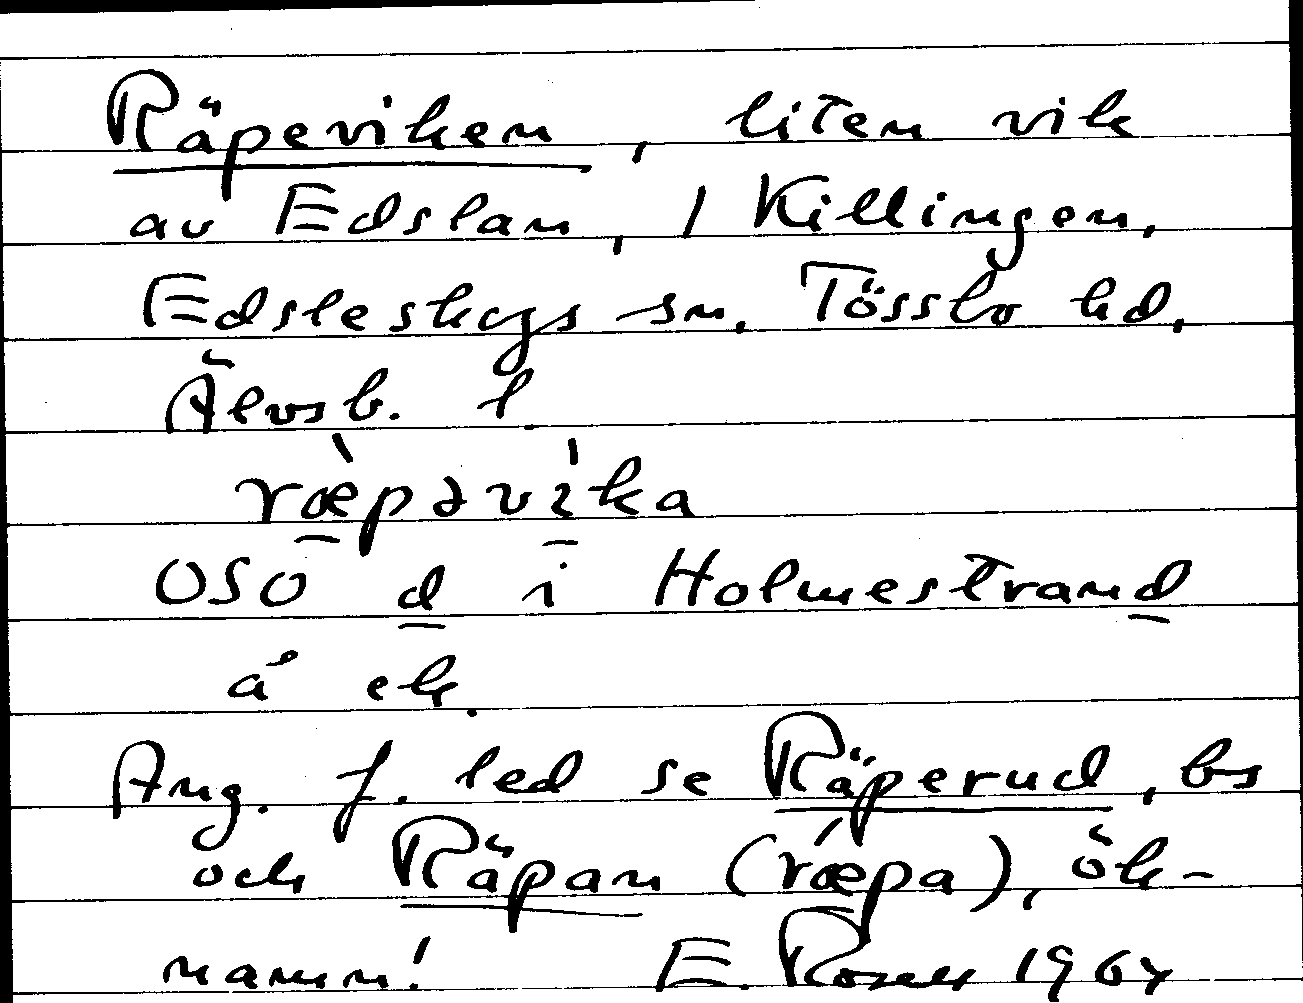 Räpeviken, liten vik
av Edslan, / Killingen,
Edsleskogs sn. Tössbo hd,
Älvsb. l.
ræ̀pəvíka
OSO d i Holmestrand
å ek.
Ang. f. led se Räperud, bs
och Räpan (rǽpa), ök-
namn! E. Rosell 1964